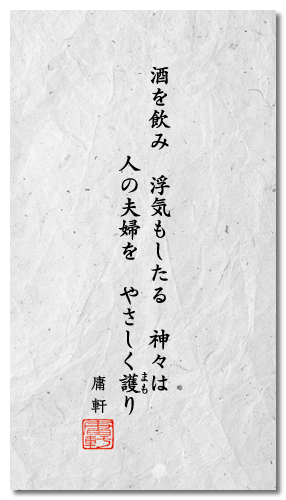 酒を飲み　浮気もしたる　神々は
人の夫婦を　やさしく護り
まも
庸軒